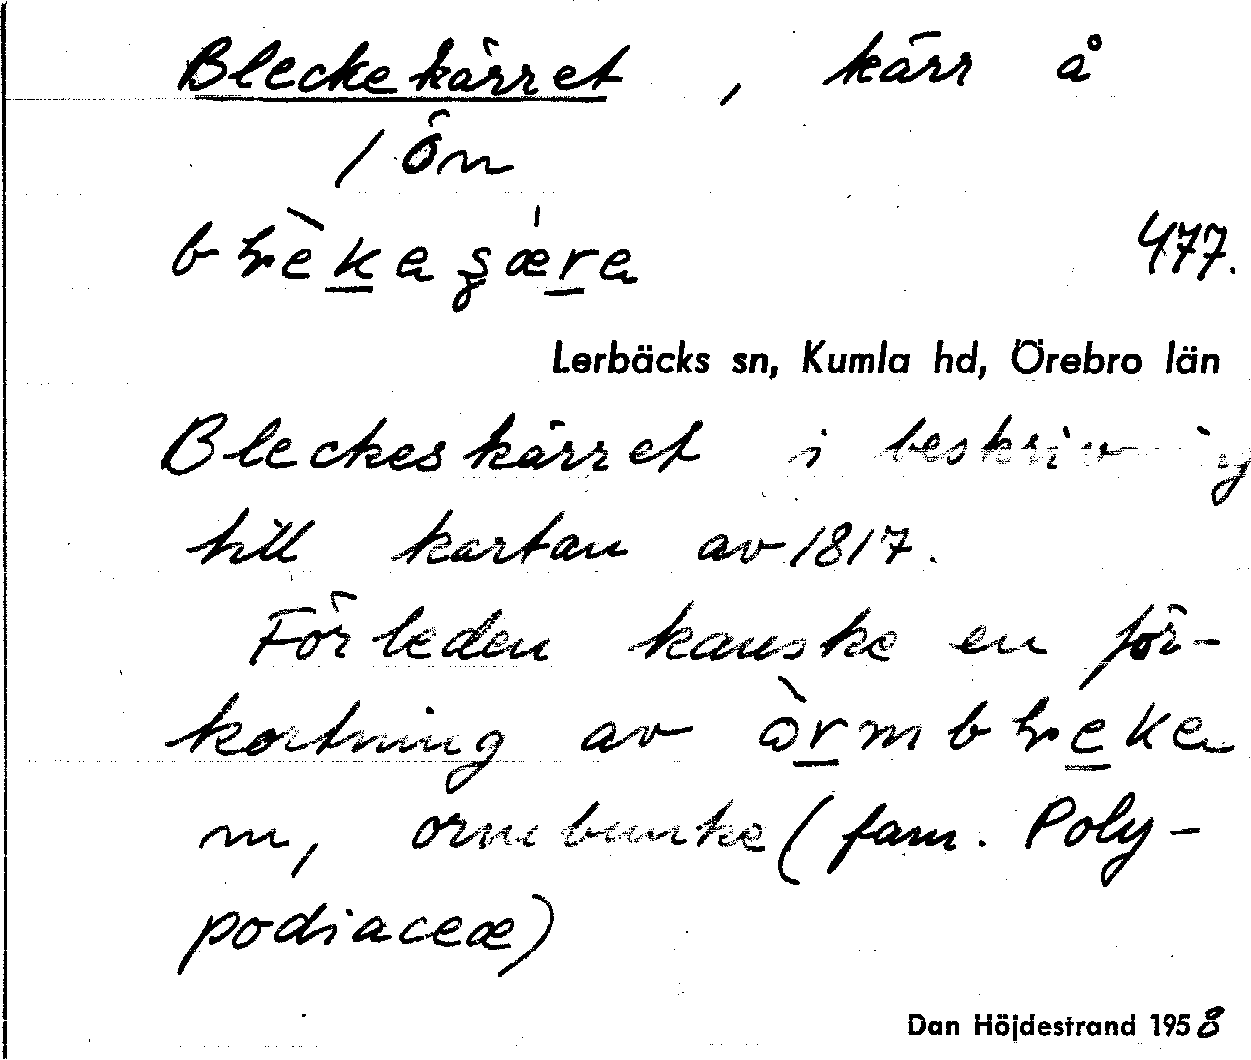 Bleckekärret, kärr å
/Ön
477.
Lerbäcks sn, Kumla hd, Örebro län
Bleckeskärret i beskrivning
till kartan av 1817.
Förleden kanske en för-
kortning av
m, ormbunke (fam. Poly-
podiaceæ)
Dan Höjdestrand 1958